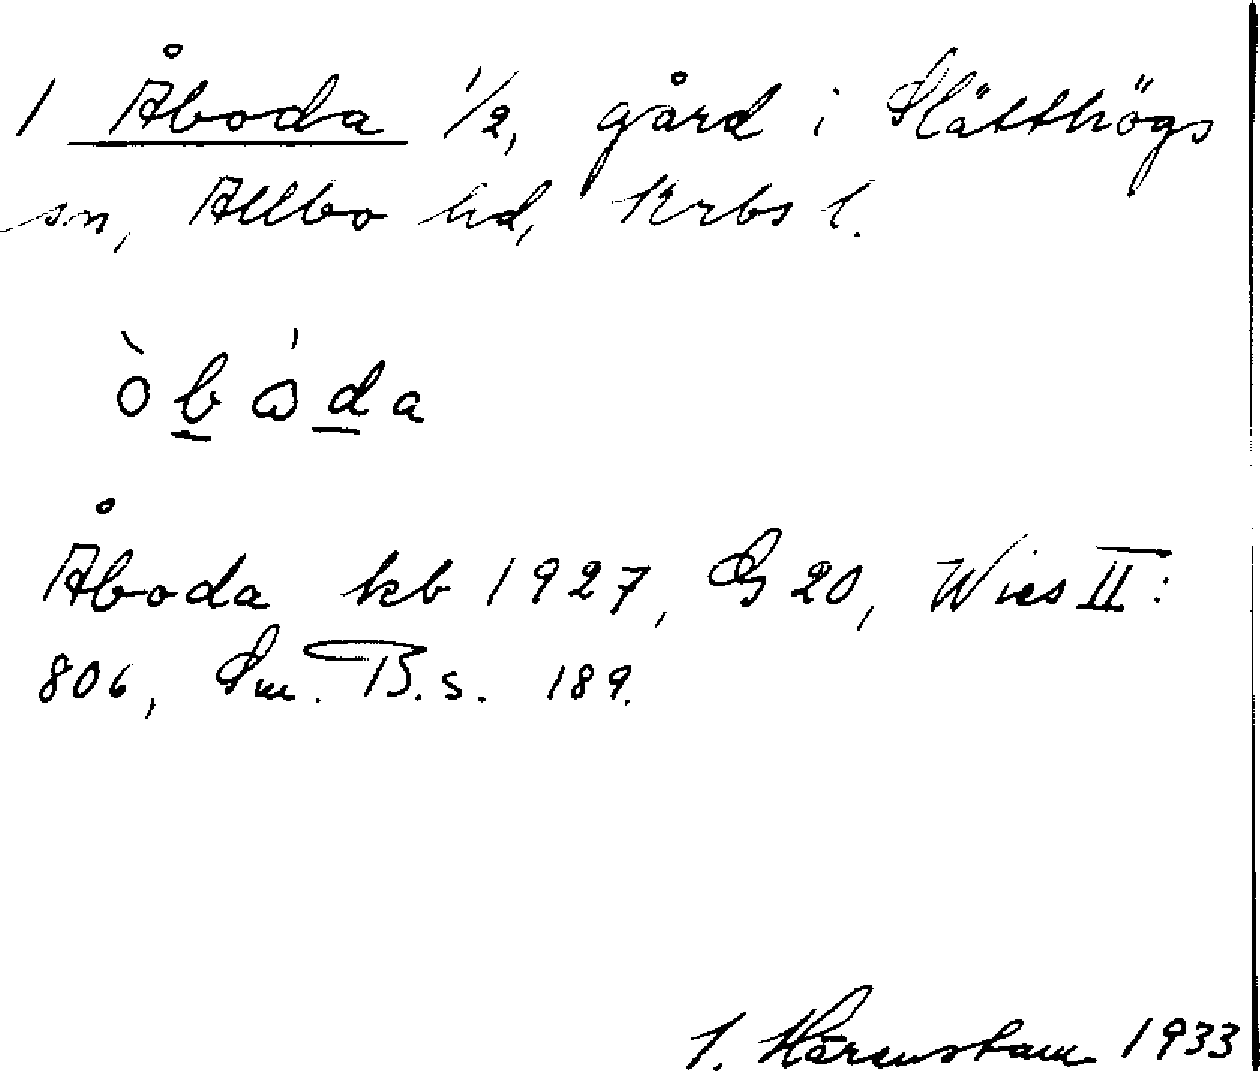 1 Åboda 1/2, gård i Slätthögs
sn, Allbo hd, Krbs l.
òbåda
Åboda kb 1927, G 20, Wies II:
806, Sm. B. s. 189.
Härenstam 1933